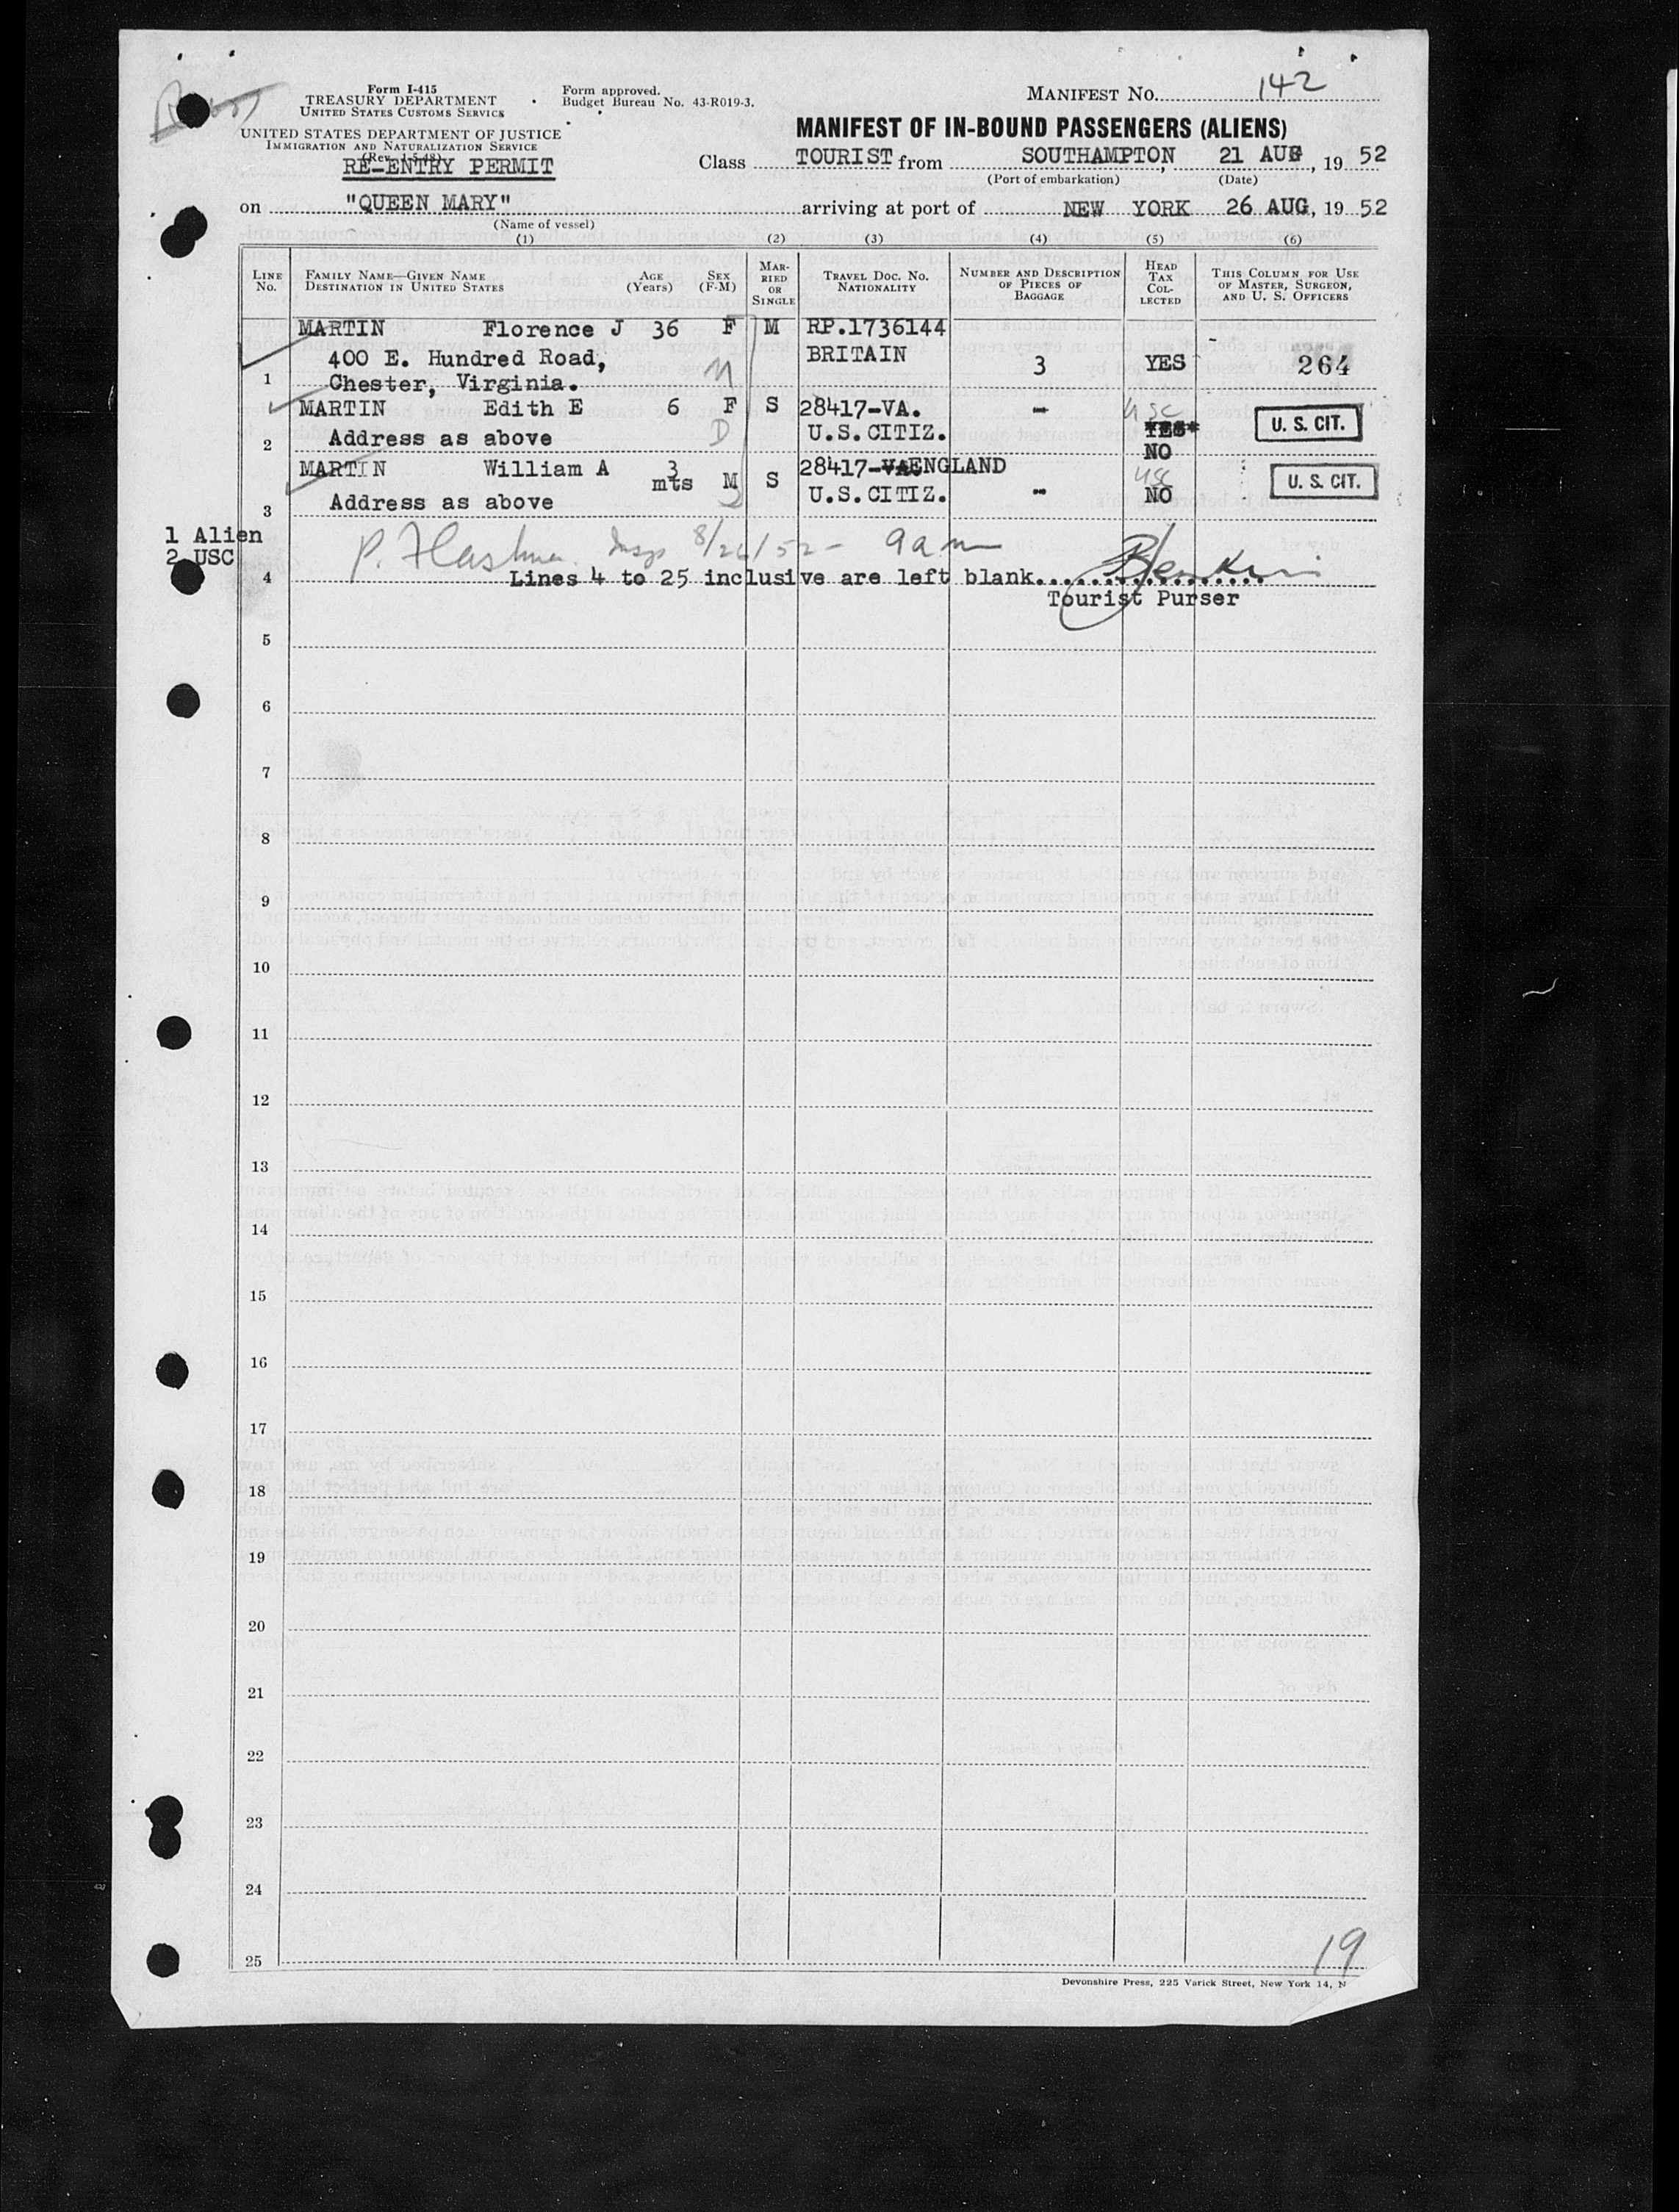 Form I-415
TREASURY DEPARTMENT
UNITED STATES CUSTOMS SERVICE
UNITED STATES DEPARTMENT OF JUSTICE
IMMIGRATION AND NATURALIZATION SERVICE
RE-ENTRY PERMIT
Form approved.
Budget Bureau No. 43-R019-3.
MANIFEST No. 142
MANIFEST OF IN-BOUND PASSENGERS (ALIENS)
Class TOURIST from SOUTHAMPTON, 21 AUG, 19 52
(Port of embarkation) (Date)
on "QUEEN MARY" arriving at port of NEW YORK 26 AUG, 19 52
(Name of vessel)
(1) (2) (3) (4) (5) (6)
LINE No. FAMILY NAME—GIVEN NAME DESTINATION IN UNITED STATES AGE (Years) SEX (F-M) MARRIED OR SINGLE TRAVEL DOC. NO. NATIONALITY NUMBER AND DESCRIPTION OF PIECES OF BAGGAGE HEAD TAX COLLECTED THIS COLUMN FOR USE OF MASTER, SURGEON, AND U. S. OFFICERS
MARTIN Florence J 36 F M RP.1736144
400 E. Hundred Road, BRITAIN 3 YES 264
1 Chester, Virginia. M
MARTIN Edith E 6 F S 28417-VA. - USC U. S. CIT.
2 Address as above D U.S.CITIZ. YES NO
MARTIN William A 3 mts M S 28417-VA ENGLAND USC U. S. CIT.
3 Address as above U.S.CITIZ. - NO
1 Alien
2 USC
8/26/52 - 9 am
4 Lines 4 to 25 inclusive are left blank.
Tourist Purser
5
6
7
8
9
10
11
12
13
14
15
16
17
18
19
20
21
22
23
24
25
19
Devonshire Press, 225 Varick Street, New York 14, N